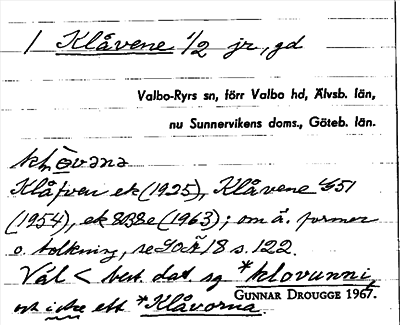 1 Klåvene 1/2 jr, gd
Valbo-Ryrs sn, förr Valbo hd, Älvsb. län,
nu Sunnervikens doms., Göteb. län.
Klåfven ek (1925), Klåvene 1/51
(1954), ek 8B8e (1963); om ä. former
o. tolkning, se SOÄ 18 s. 122.
Väl < best. dat. sg *klovunni,
och icke ett *Klåvorna.
GUNNAR DROUGGE 1967.